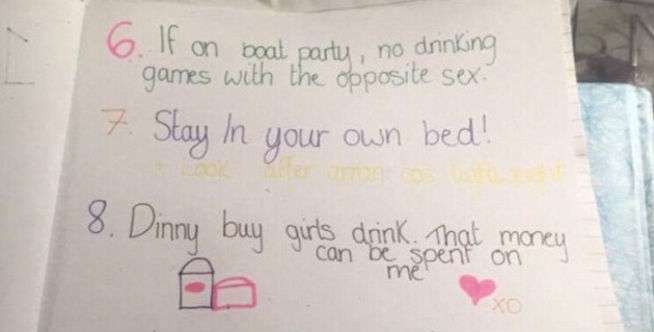 6. If on boat party, no drinking
games with the opposite sex.
7. Stay In your own bed!
+ Look after
8. Dinny buy girls drink. That money
can be spent on
me
XO